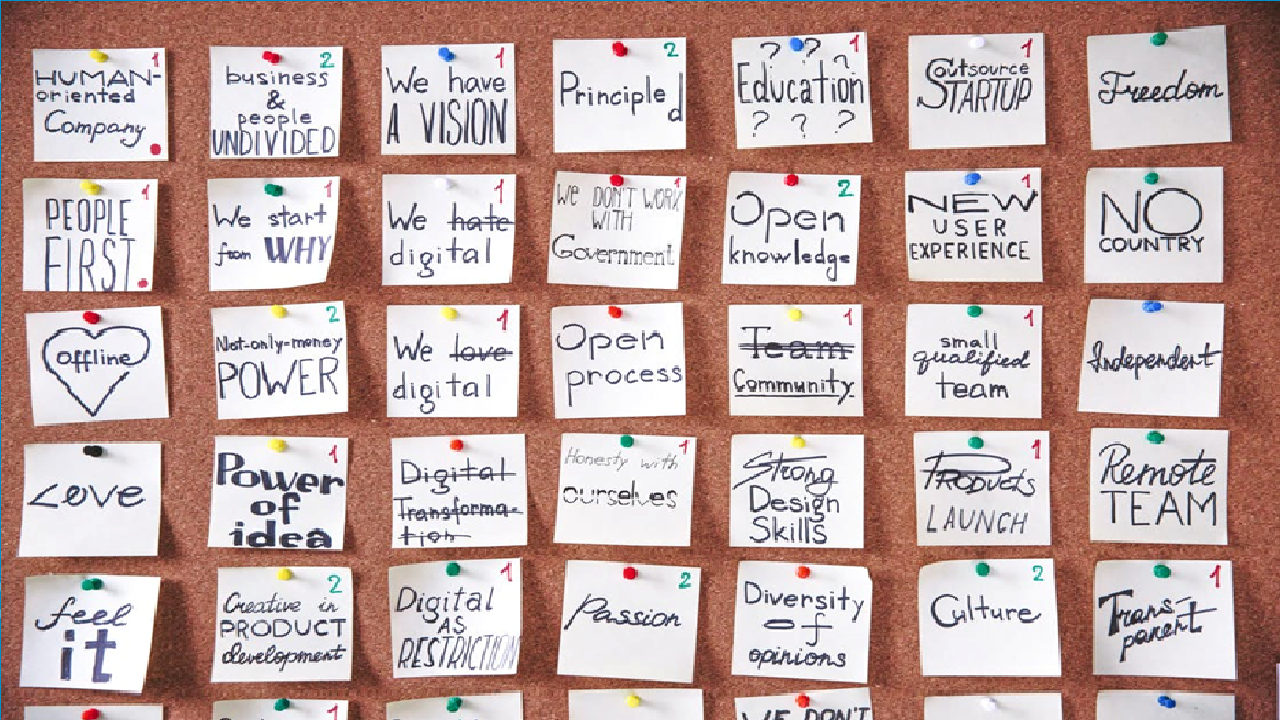 1
HUMAN-
oriented
Company
2
business
&
people
UNDIVIDED
1
We have
A VISION
2
Principled
1
? ? ?
Education
? ? ?
1
Outsource
STARTUP
Freedom
1
PEOPLE
FIRST
1
We start
from WHY
1
We hate
digital
1
We DON'T WORK
WITH
Government
2
Open
knowledge
1
NEW
USER
EXPERIENCE
NO
COUNTRY
Offline
2
Not-only-money
POWER
1
We love
digital
Open
process
1
Team
Community
1
small
qualified
team
Independent
Love
1
Power
of
idea
Digital
Transforma-
tion
1
Honesty with
ourselves
Strong
Design
Skills
1
Products
LAUNCH
Remote
TEAM
feel
it
2
Creative in
PRODUCT
development
1
Digital
AS
RESTRICTION
2
Passion
Diversity
of
opinions
2
Culture
1
Trans-
parent
1
WE DON'T